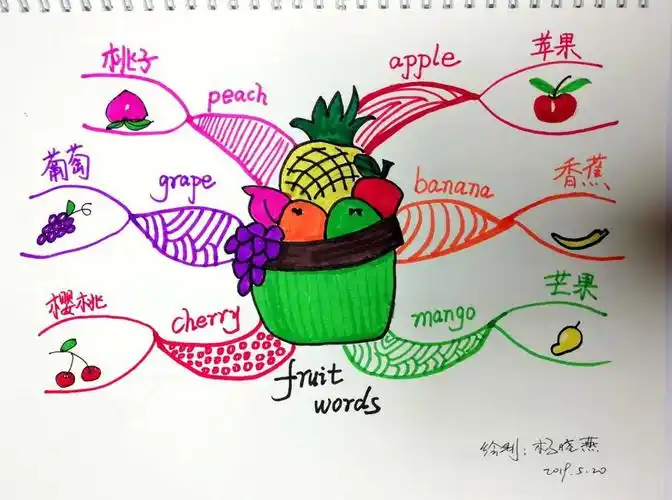 桃子
peach
苹果
apple
葡萄
grape
香蕉
banana
樱桃
cherry
芒果
mango
fruit
words
绘制:杨晓燕
2019.5.20